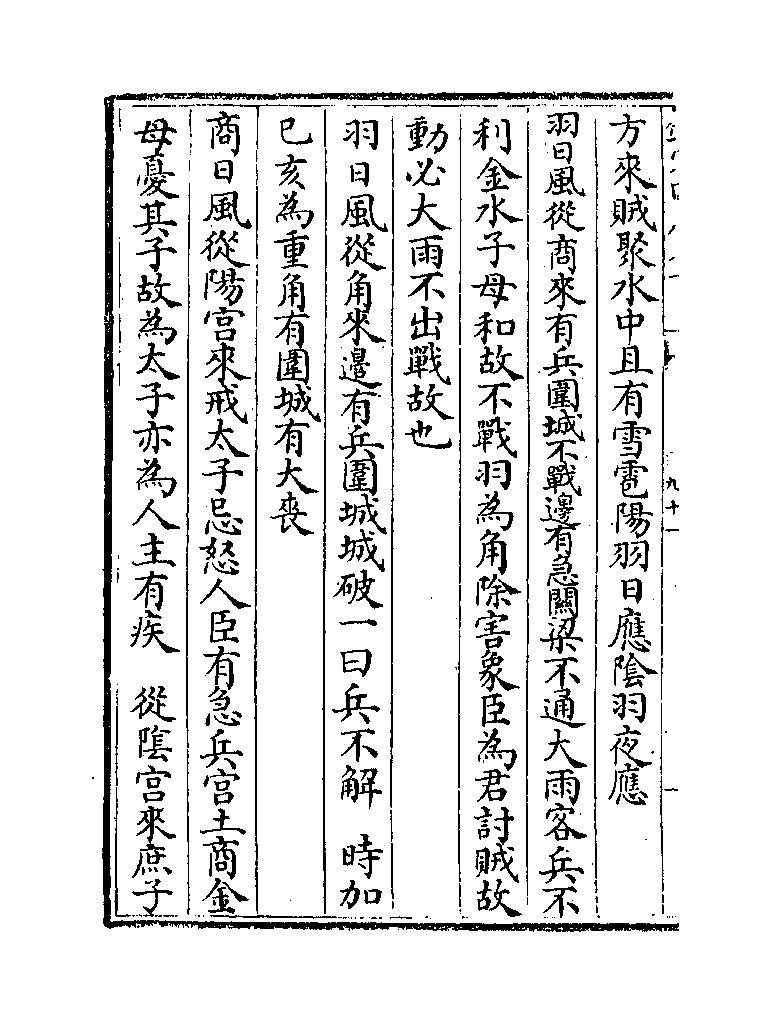 方來賊聚水中且有雪雹陽羽日應陰羽夜應
羽日風從商來有兵圍城不戰邊有急關梁不通大雨客兵不
利金水子母和故不戰羽為角除害象臣為君討賊故
動必大雨不出戰故也
羽日風從角來邊有兵圍城城破一曰兵不解　時加
巳亥為重角有圍城有大喪
商日風從陽宮來戒太子忌怒人臣有急兵宮土商金
母憂其子故為太子亦為人主有疾　從陰宮來庶子